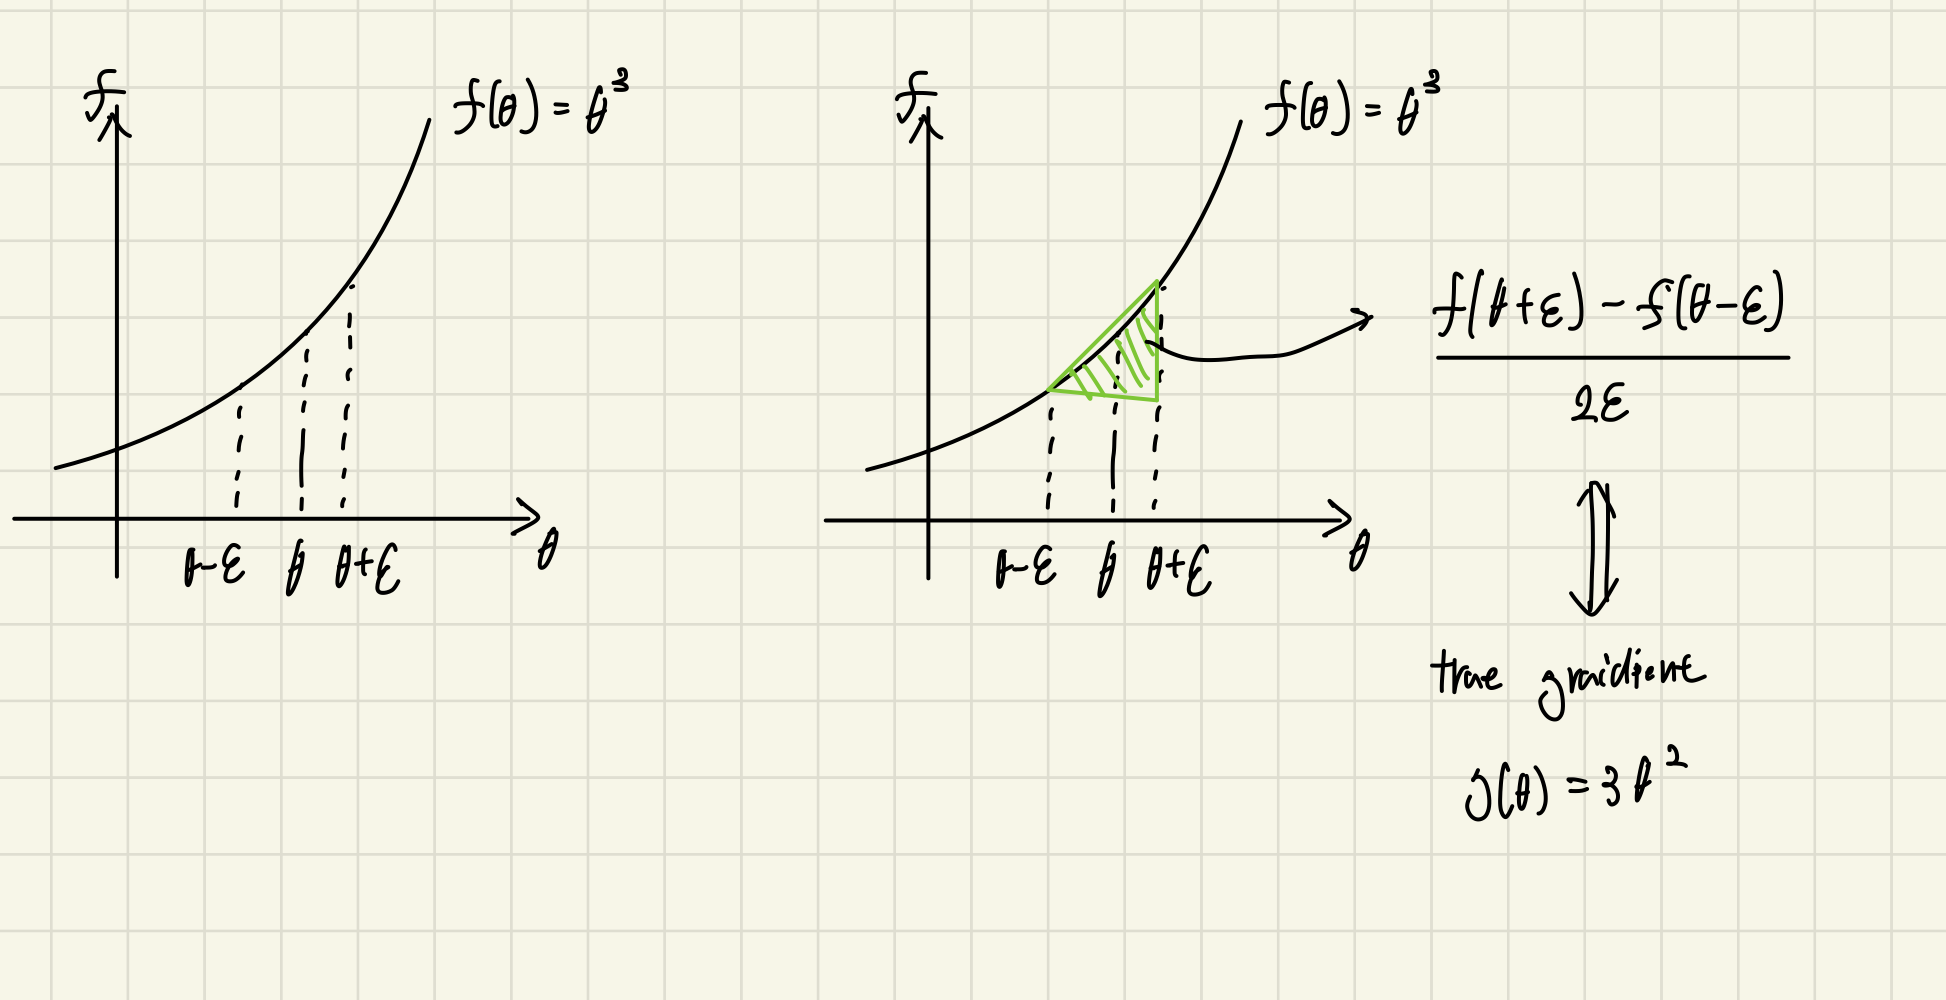 f
f(θ) = θ³
θ-ε θ θ+ε
θ
f
f(θ) = θ³
θ-ε θ θ+ε
θ
f(θ+ε) - f(θ-ε)
2ε
true graidient
g(θ) = 3θ²